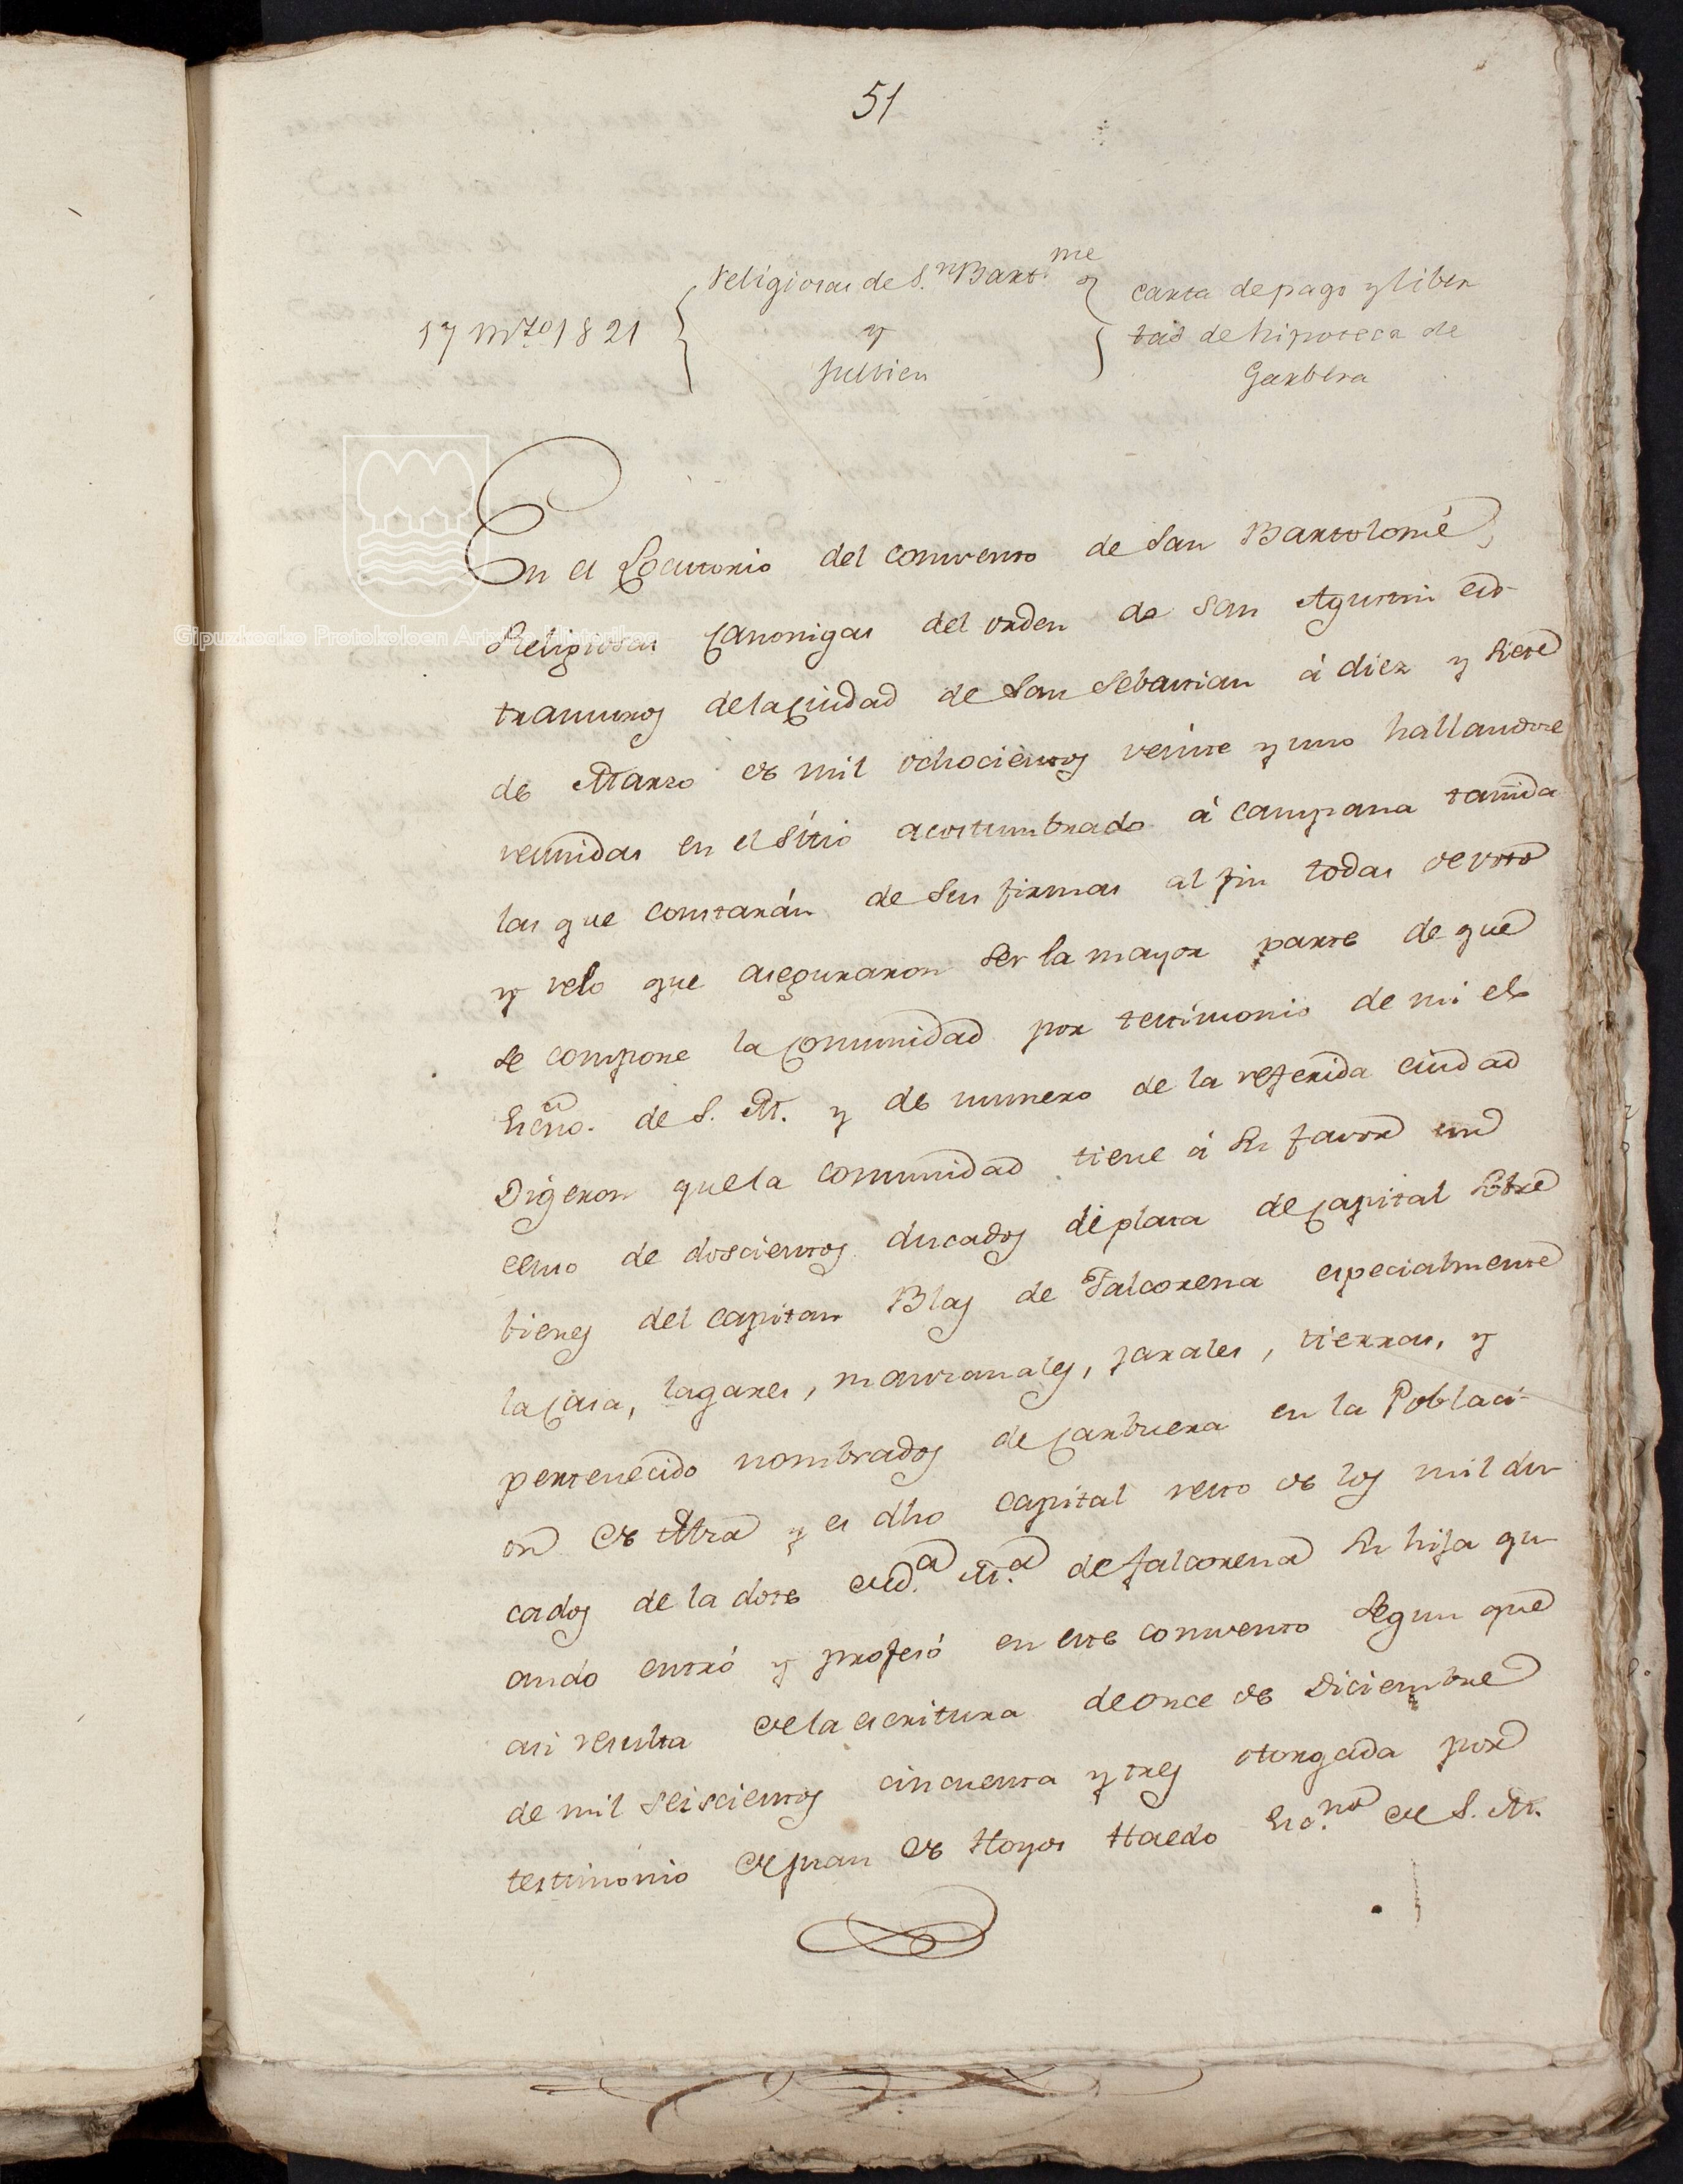 51
religiosas de S.n Bart.me
17 Mzo 1821
y
Jullien
carta de pago y liber
tad de hipoteca de
Garbera
En el Locutorio del convento de San Bartolomé,
Religiosas Canonigas del orden de San Agustin ex-
tramuros de la Ciudad de San Sebastian á diez y siete
de Marzo de mil ochocientos veinte y uno hallandose
reunidas en el sitio acostumbrado á campana tañida
las que constarán de sus firmas al fin todas de voto
y velo que aseguraron ser la mayor parte de que
se compone la Comunidad por testimonio de mi el
Escno. de S. M. y de numero de la referida ciudad
Digeron que la comunidad tiene á su favor un
censo de doscientos ducados de plata de Capital sobre
bienes del capitan Blas de Falcorena especialmente
la Casa, lagares, manzanales, jarales, tierras, y
pertenecido nombrados de Carbuera en la Poblaci-
on de Alza y es dho capital resto de los mil du-
cados de la dote de D.a M.a de Falcorena su hija qu-
ando entró y profesó en este convento segun que
asi resulta de la escritura de once de Diciembre
de mil seiscientos cincuenta y tres otorgada por
testimonio de Juan de Hoyos Haedo Esc.no de S. M.
Gipuzkoako Protokoloen Artxibo Historikoa